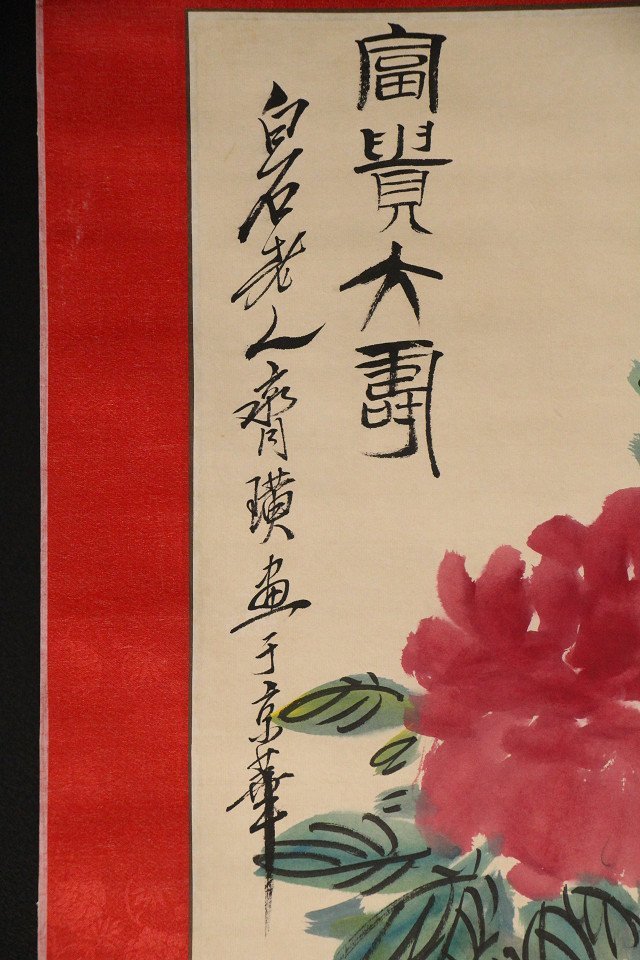 富貴大壽
白石老人齊璜画于京華